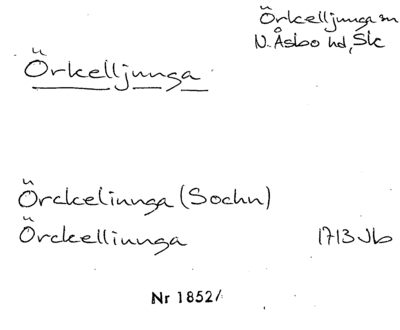 Örkelljunga sn
N. Åsbo hd, Sk
Örkelljunga
Örckeliunga (Sochn)
Örckelliunga 1713 Jb
Nr 1852/